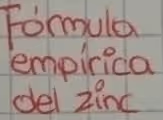 Fórmula
empírica
del zinc